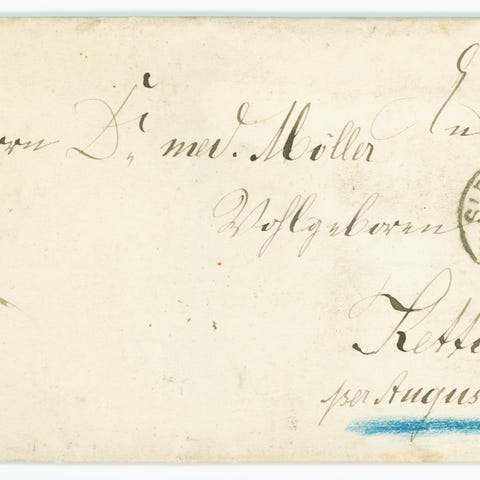 rrn Dr. med. Möller
Wohlgeboren
Kett
per Augus